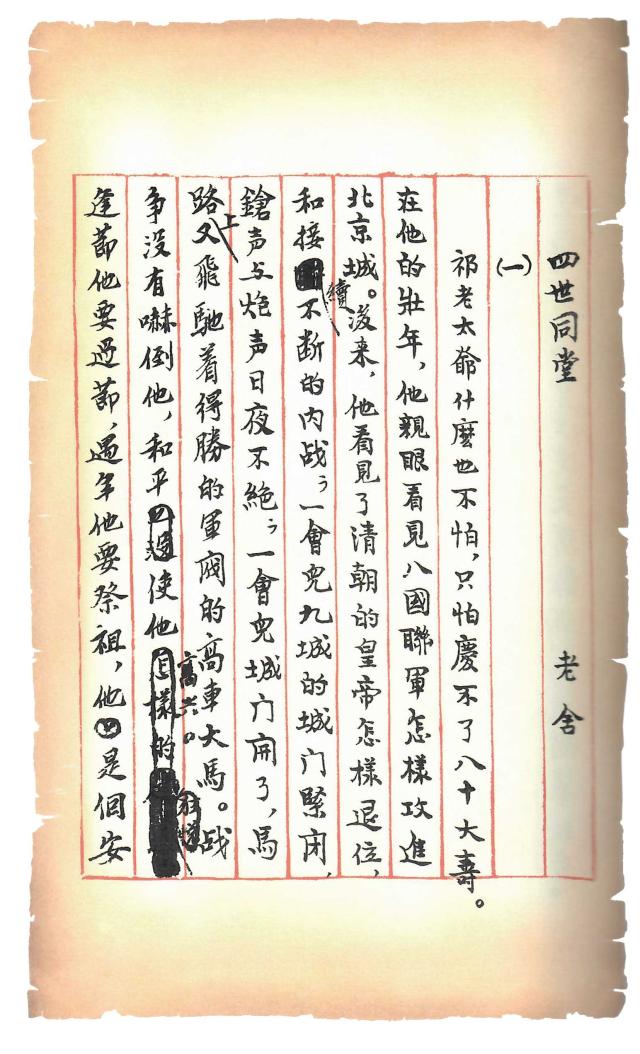 四世同堂 老舍
（一）
祁老太爺什麽也不怕，只怕慶不了八十大壽。
在他的壯年，他親眼看見八國聯軍怎樣攻進
北京城。後来，他看見了清朝的皇帝怎樣退位，
和接續不断的内战；一會兒九城的城门緊闭，
鎗声与炮声日夜不絶；一會兒城门開了，馬
路上又飛馳着得勝的軍閥的高車大馬。战
争没有嚇倒他，和平使他高兴。
逢節他要过節，遇年他要祭祖，他是個安